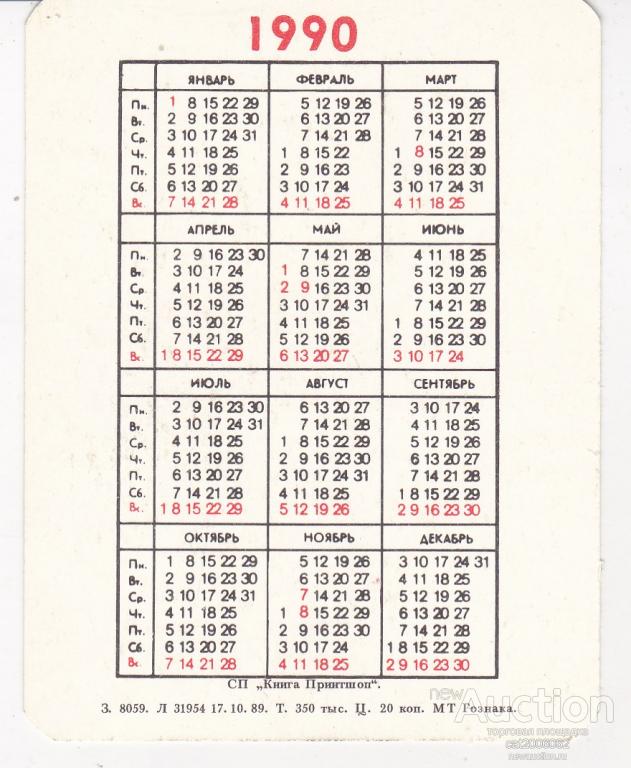 1990
ЯНВАРЬ ФЕВРАЛЬ МАРТ
Пн. 1 8 15 22 29 5 12 19 26 5 12 19 26
Вт. 2 9 16 23 30 6 13 20 27 6 13 20 27
Ср. 3 10 17 24 31 7 14 21 28 7 14 21 28
Чт. 4 11 18 25 1 8 15 22 1 8 15 22 29
Пт. 5 12 19 26 2 9 16 23 2 9 16 23 30
Сб. 6 13 20 27 3 10 17 24 3 10 17 24 31
Вс. 7 14 21 28 4 11 18 25 4 11 18 25
АПРЕЛЬ МАЙ ИЮНЬ
Пн. 2 9 16 23 30 7 14 21 28 4 11 18 25
Вт. 3 10 17 24 1 8 15 22 29 5 12 19 26
Ср. 4 11 18 25 2 9 16 23 30 6 13 20 27
Чт. 5 12 19 26 3 10 17 24 31 7 14 21 28
Пт. 6 13 20 27 4 11 18 25 1 8 15 22 29
Сб. 7 14 21 28 5 12 19 26 2 9 16 23 30
Вс. 1 8 15 22 29 6 13 20 27 3 10 17 24
ИЮЛЬ АВГУСТ СЕНТЯБРЬ
Пн. 2 9 16 23 30 6 13 20 27 3 10 17 24
Вт. 3 10 17 24 31 7 14 21 28 4 11 18 25
Ср. 4 11 18 25 1 8 15 22 29 5 12 19 26
Чт. 5 12 19 26 2 9 16 23 30 6 13 20 27
Пт. 6 13 20 27 3 10 17 24 31 7 14 21 28
Сб. 7 14 21 28 4 11 18 25 1 8 15 22 29
Вс. 1 8 15 22 29 5 12 19 26 2 9 16 23 30
ОКТЯБРЬ НОЯБРЬ ДЕКАБРЬ
Пн. 1 8 15 22 29 5 12 19 26 3 10 17 24 31
Вт. 2 9 16 23 30 6 13 20 27 4 11 18 25
Ср. 3 10 17 24 31 7 14 21 28 5 12 19 26
Чт. 4 11 18 25 1 8 15 22 29 6 13 20 27
Пт. 5 12 19 26 2 9 16 23 30 7 14 21 28
Сб. 6 13 20 27 3 10 17 24 1 8 15 22 29
Вс. 7 14 21 28 4 11 18 25 2 9 16 23 30
СП „Книга Принтшоп".
З. 8059. Л 31954 17. 10. 89. Т. 350 тыс. Ц. 20 коп. МТ Гознака.
newAuction
торговая площадка
cat2006062
newauction.ru